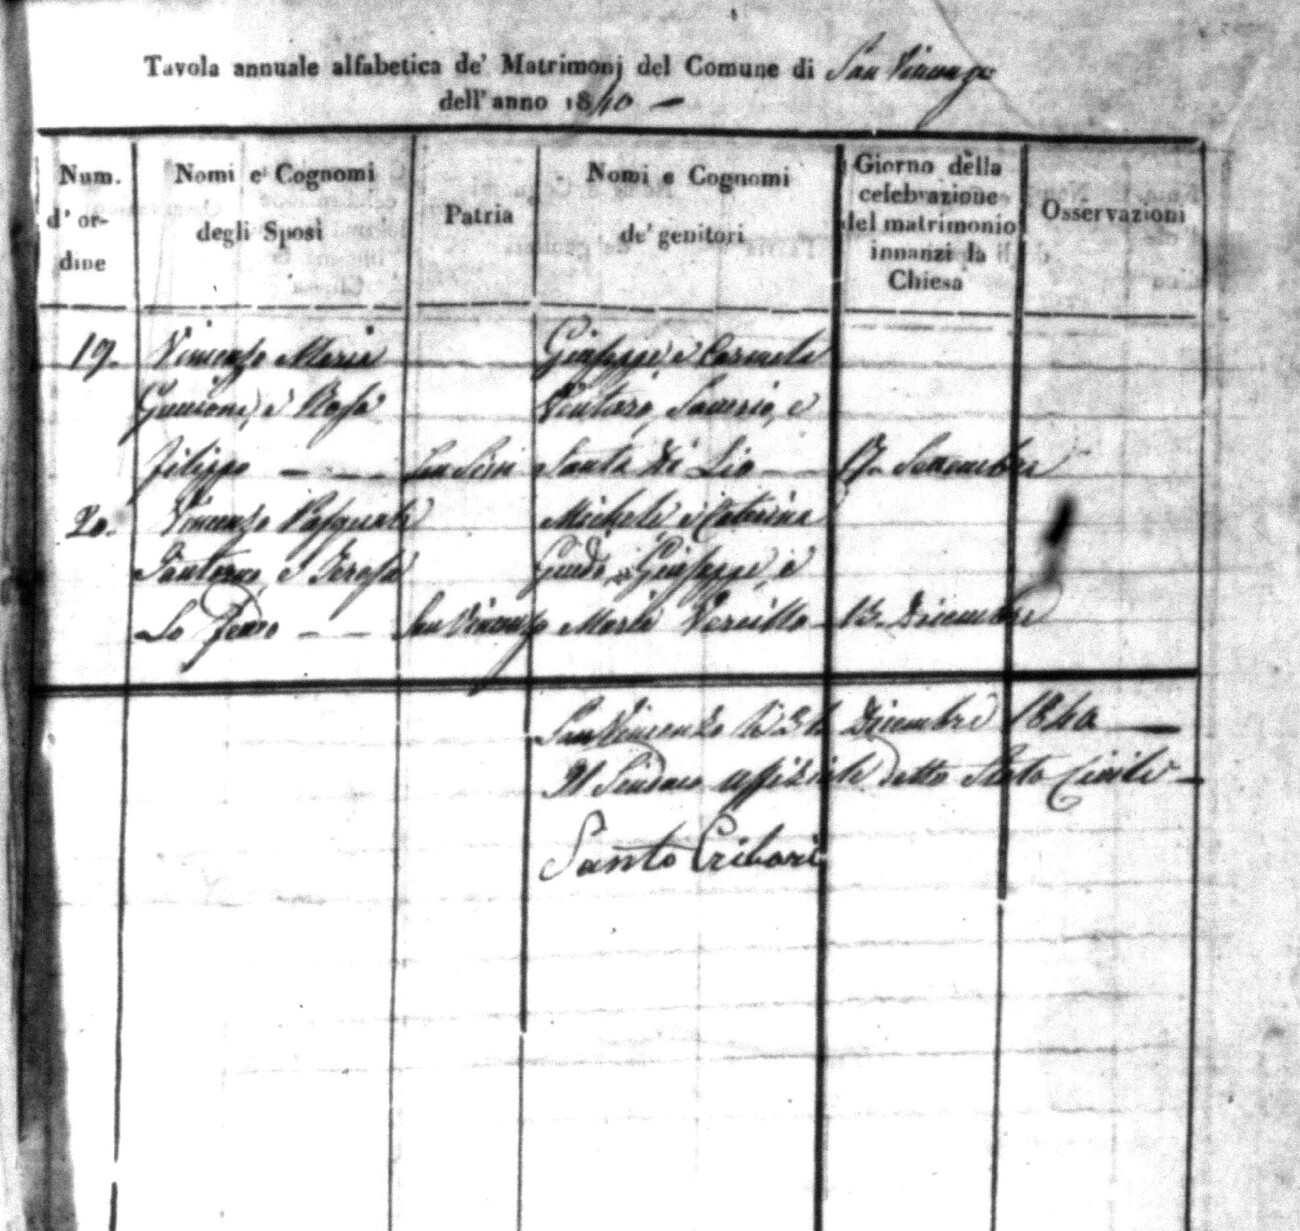 Tavola annuale alfabetica de' Matrimonj del Comune di San Vincenzo
dell'anno 1840 —
Num. d'ordine
Nomi e Cognomi degli Sposi
Patria
Nomi e Cognomi de' genitori
Giorno della celebrazione del matrimonio innanzi la Chiesa
Osservazioni
19. Vincenzo Maria Giuseppe e Carmela
e Rosa Saverio, e
Filippo — — Santa Di Lio — 17
20. Vincenzo Pasquale Michele e Caterina
Santoro, e Teresa Guido Giuseppe, e
Lo Feudo — — San Vincenzo Maria Vercillo — 13 Dicembre
San Vincenzo li 31 Dicembre 1840 —
Il Sindaco uffiziale dello Stato Civile —
Santo Cribari